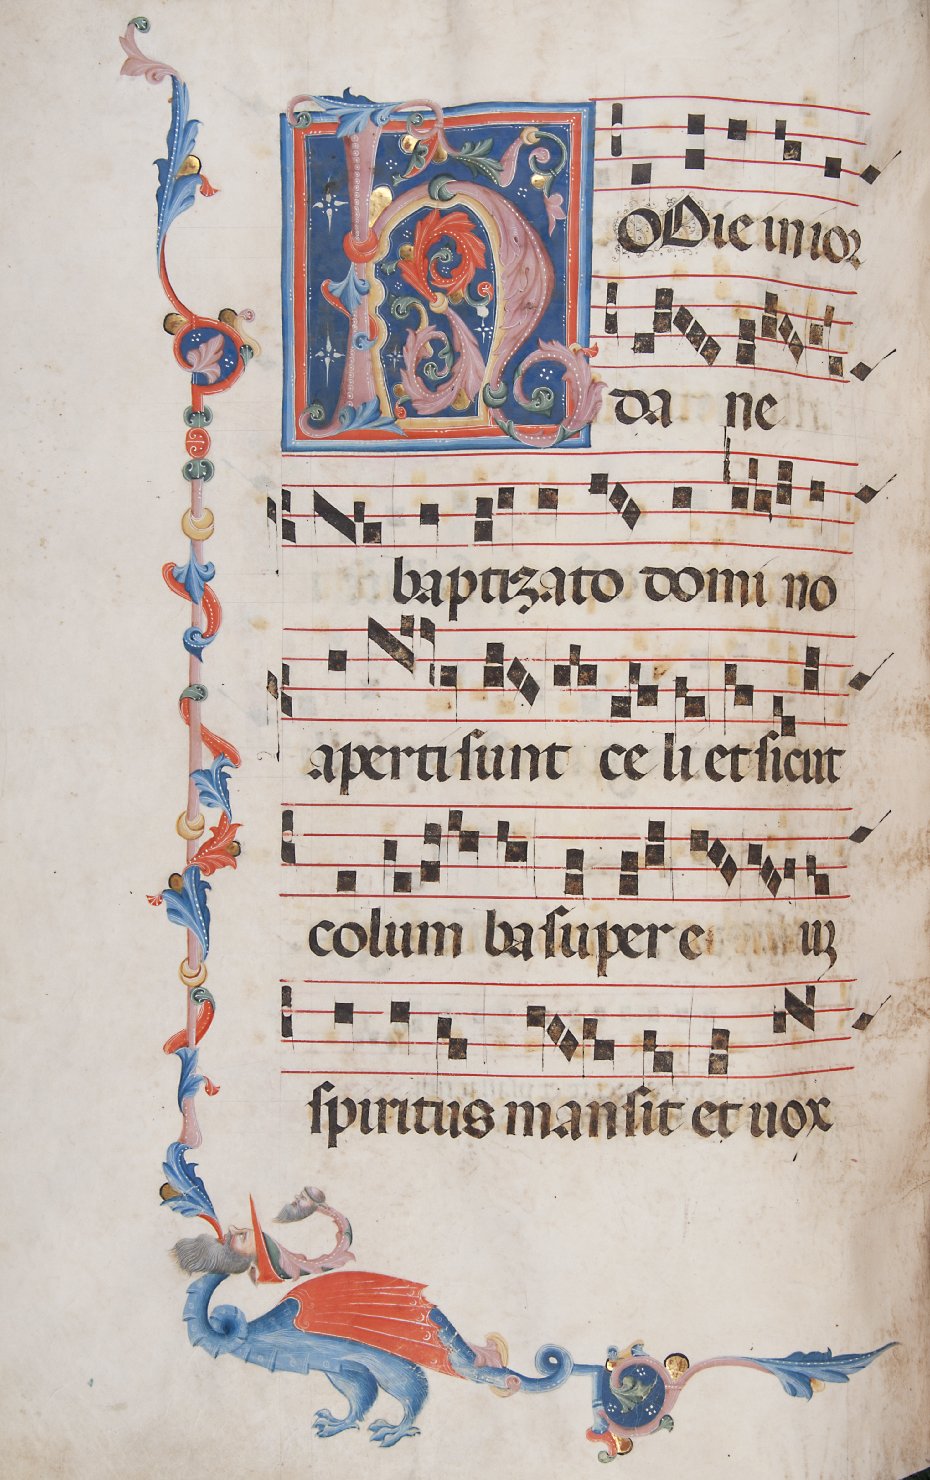 hoDie in ior
da ne
baptizato domi no
aperti sunt ce li et sicut
colum ba super e uz
spiritus mansit et uox